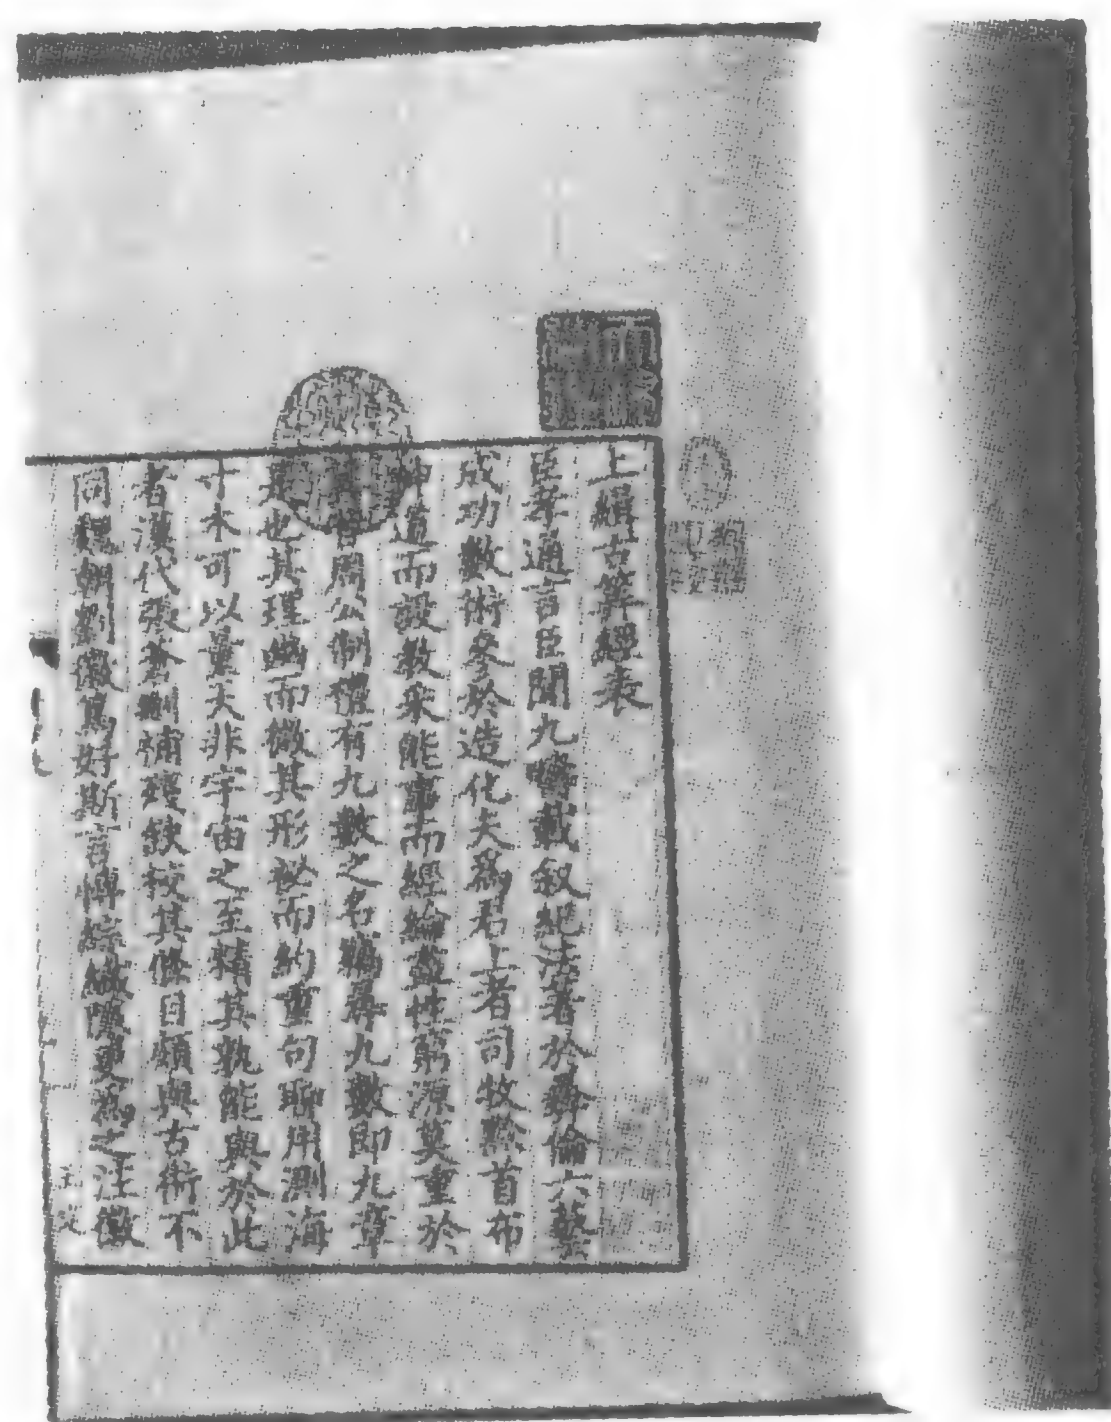 上緝古算經表
臣孝通言臣聞九疇載敘紀法著於彝倫六藝
成功數術參於造化夫爲君上者司牧黔首布
神道而設教采能事而經綸盡性窮源莫重於
昔周公制禮有九數之名竊尋九數即九章
是也其理幽而微其形祕而約重句聊用測海
寸木可以量天非宇宙之至精其孰能與於此
者漢代張蒼刪補殘缺校其條目頗與古術不
同魏朝劉徽篤好斯言博綜纖隱更爲之注徽